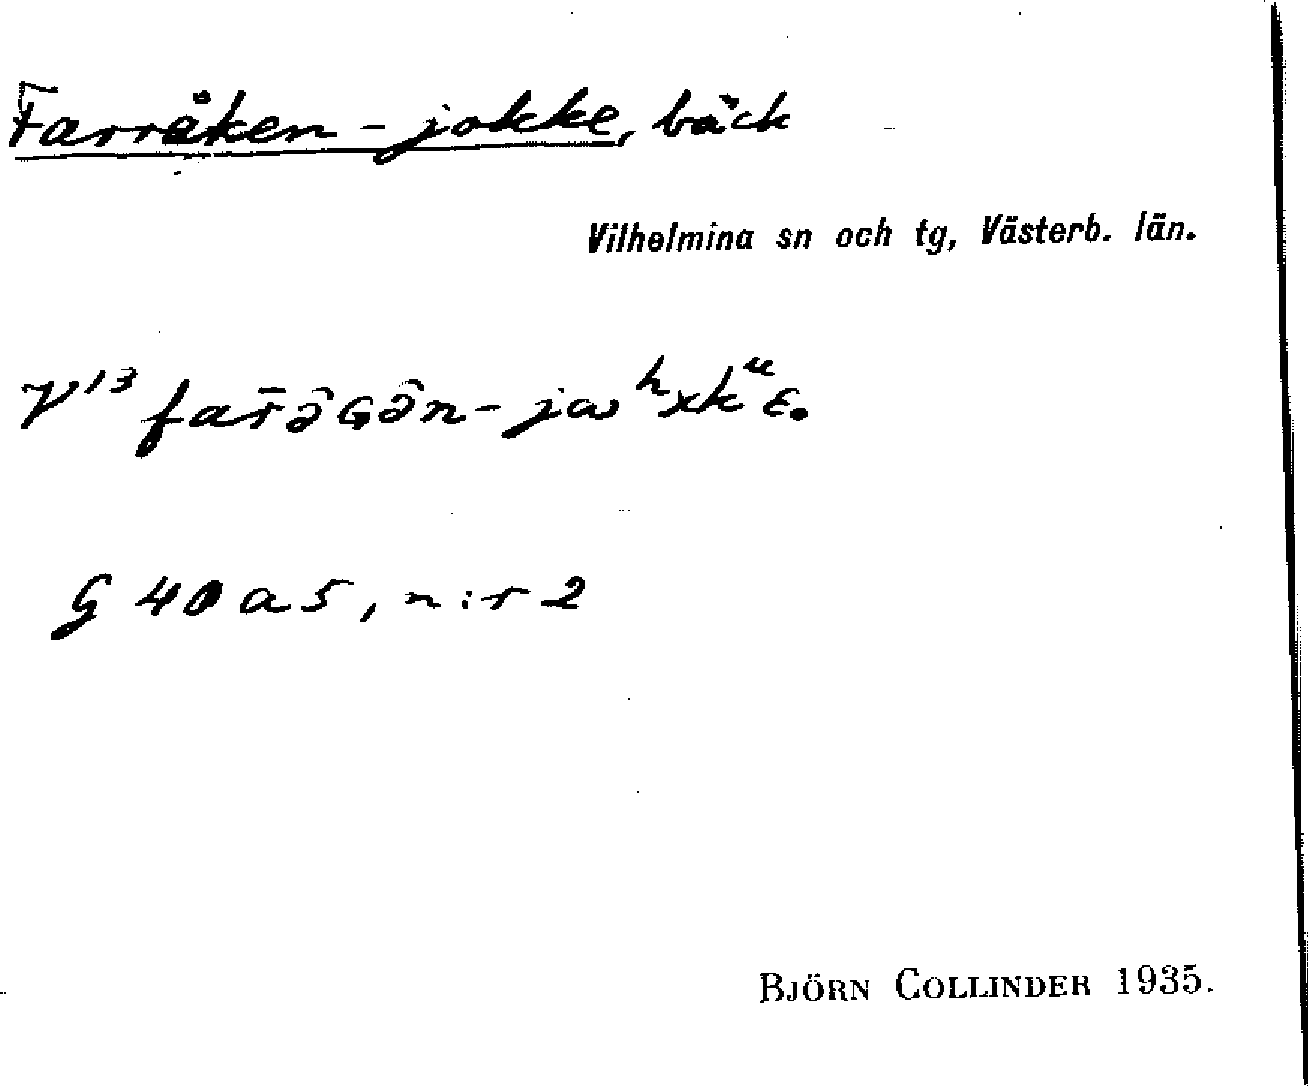 Farråken-jokke, bäck
Vilhelmina sn och tg, Västerb. län.
V¹³ far̄ə̂Gə̂n-jωʰxkᵘε.
G 40 a 5, n:r 2
BJÖRN COLLINDER 1935.